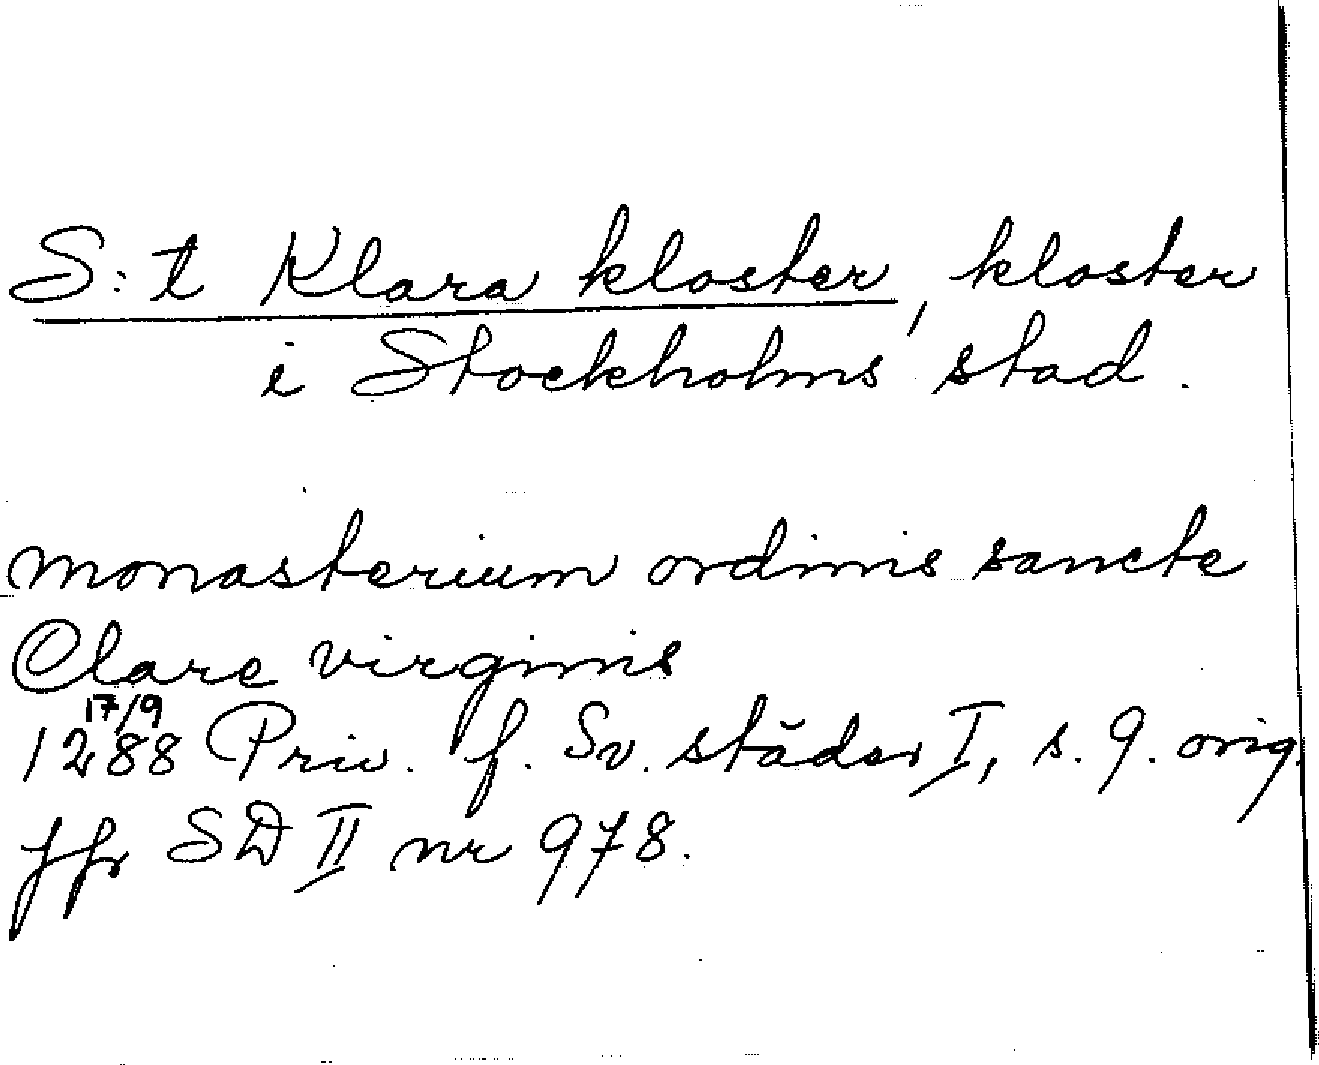 S:t Klara kloster, kloster
i Stockholms stad.
monasterium ordinis sancte
Clare virginis
17/9
1288 Priv. f. Sv. städer I, s. 9. orig.
Jfr SD II nr 978.